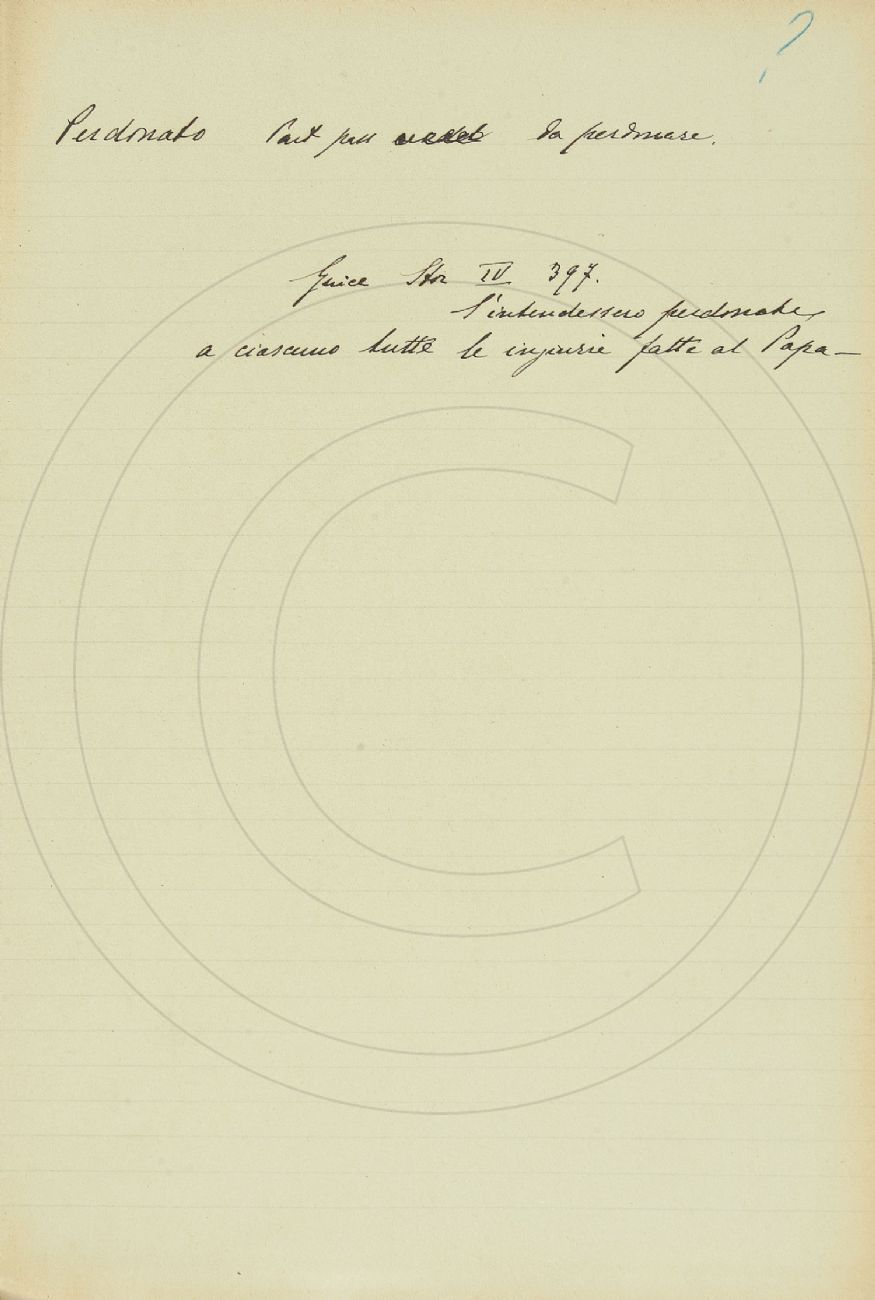 ?
Perdonato Part pass da perdonare.
Guicc Stor IV 397.
S'intendessero perdonate
a ciascuno tutte le ingiurie fatte al Papa —